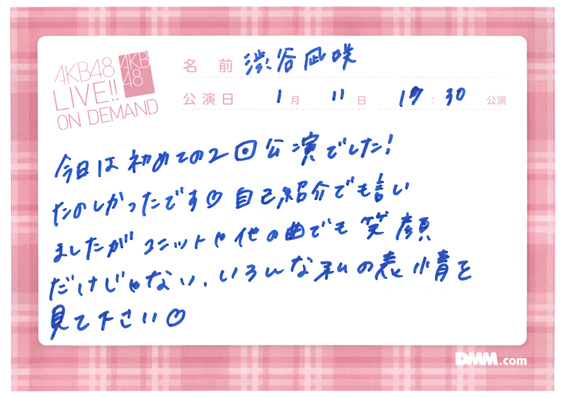 AKB48
LIVE!!
ON DEMAND
AKB
48
名 前 渋谷凪咲
公演日 1 月 11 日 17 : 30 公演
今日は初めての2回公演でした!
たのしかったです♡自己紹介でも言い
ましたがユニットや他の曲でも笑顔
だけじゃない、いろんな私の表情を
見て下さい♡
DMM.com